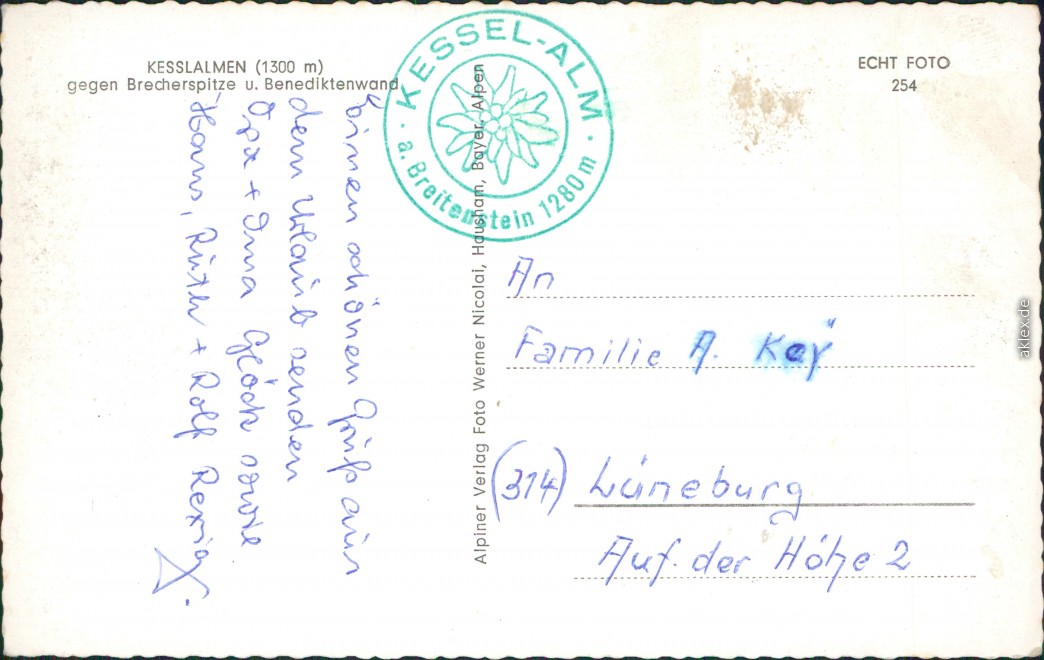 KESSLALMEN (1300 m)
gegen Brecherspitze u. Benediktenwand
KESSEL-ALM
· a. Breitenstein 1280 m ·
ECHT FOTO
254
Einen schönen Gruß aus
dem Urlaub senden
Opa + Oma Glöck sowie
Hans, Ruth + Rolf
Alpiner Verlag Foto Werner Nicolai, Hausham, Bayer. Alpen
An
Familie A.
(314) Lüneburg
Auf der Höhe 2
aklex.de